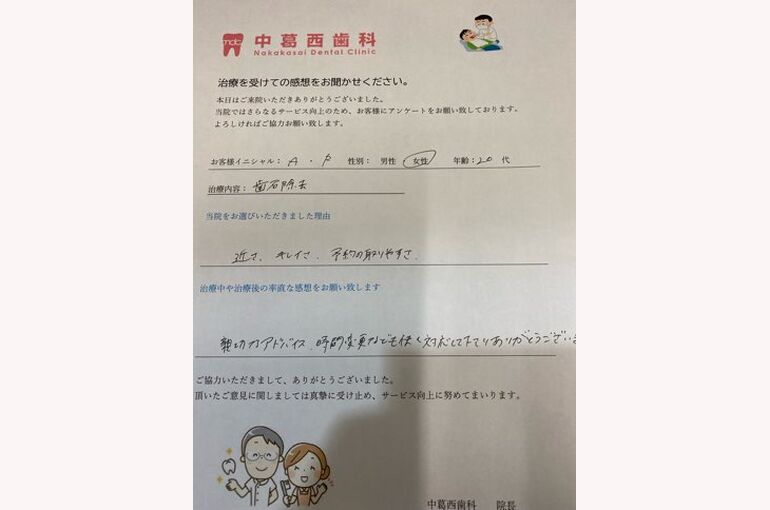 ndc 中葛西歯科
Nakakasai Dental Clinic
治療を受けての感想をお聞かせください。
本日はご来院いただきありがとうございました。
当院ではさらなるサービス向上のため、お客様にアンケートをお願い致しております。
よろしければご協力お願い致します。
お客様イニシャル： A ・ 性別： 男性 女性 年齢：20 代
治療内容： 歯石除去
当院をお選びいただきました理由
近さ、キレイさ、予約の取りやすさ、
治療中や治療後の率直な感想をお願い致します
親切なアドバイス、時間変更なども快く対応して下さりありがとうござい
ご協力いただきまして、ありがとうございました。
頂いたご意見に関しましては真摯に受け止め、サービス向上に努めてまいります。
中葛西歯科 院長